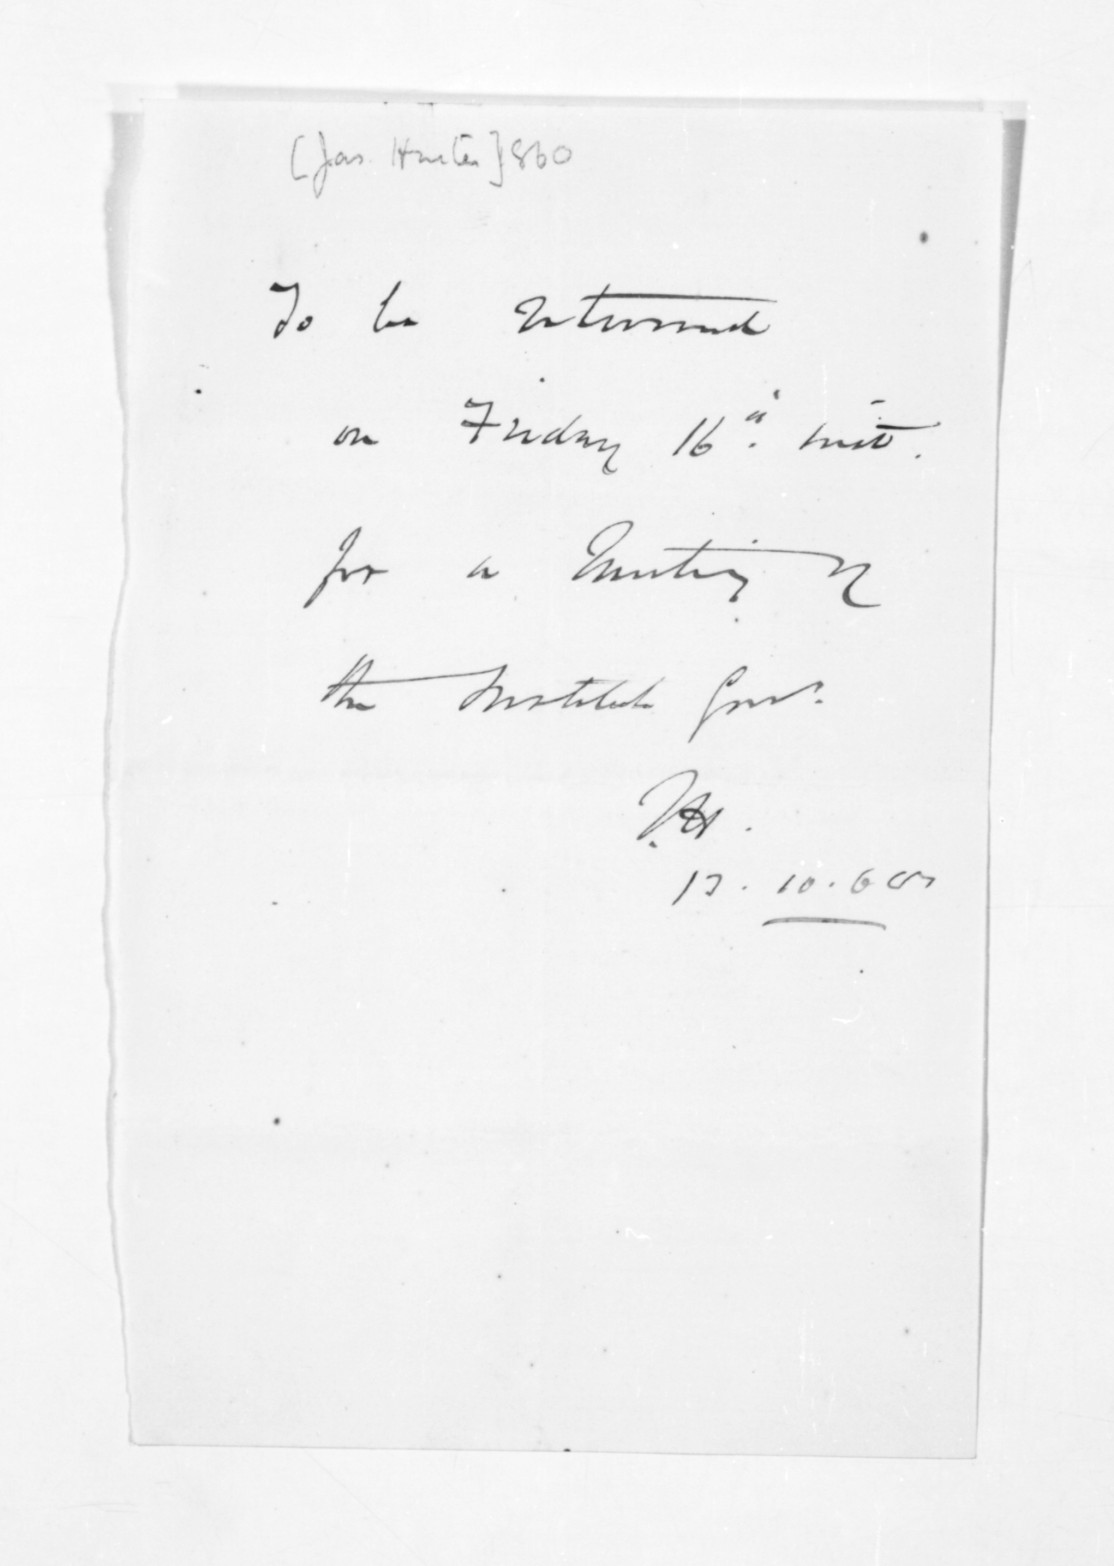 [Jas. Hector] 860
To be returned
on Friday 16th. inst.
for a Meeting of
the Institute Govrs
JH.
13.10.68